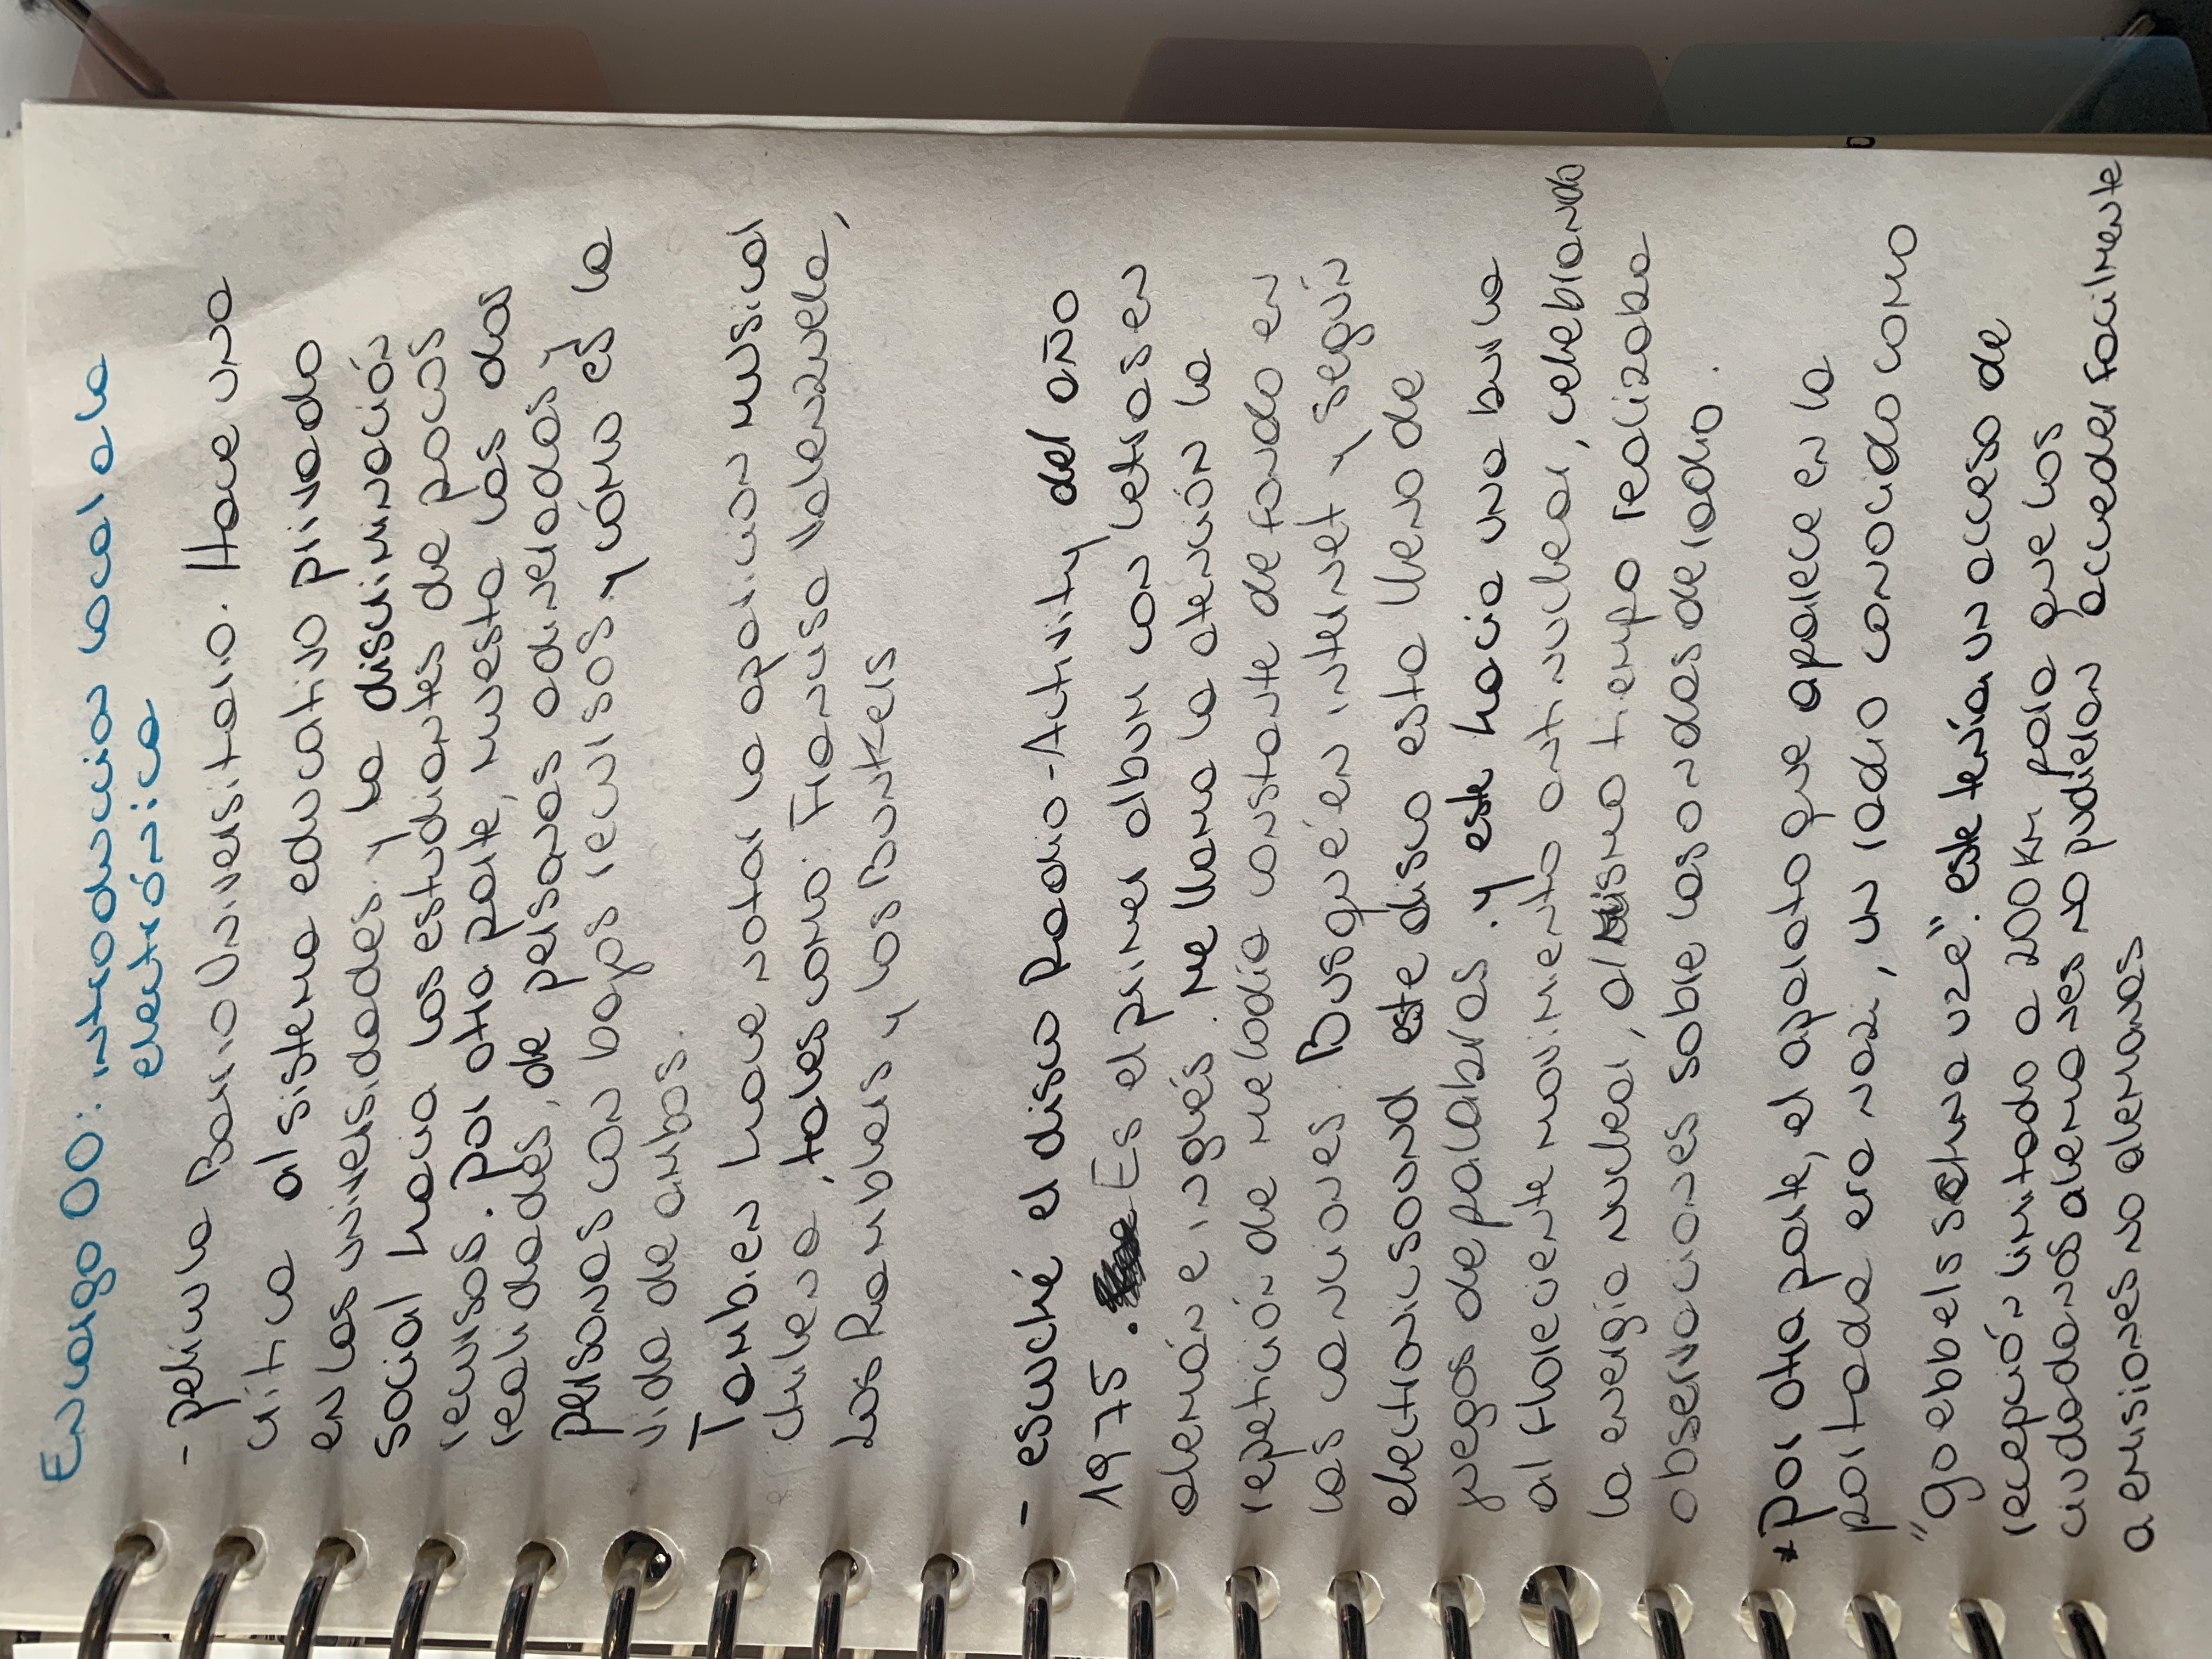 Encargo 00: introduccion local a la
electrónica
- pelicula Barrio Universitario. Hace una
crítica al sistema educativo privado
en las universidades y la discriminación
social hacia los estudiantes de pocos
recursos. Por otra parte, muesta las dos
realidades, de personas adineradas y
personas con bajos recursos y cómo es la
vida de ambos.
Tambien hace notar la aparicion musical
chilena, tales como: Francisa Valenzuela,
Los Ramblers y los Bunkers
- escuché el disco Radio-Activity del año
1975. Es el primer album con letras en
alemán e inglés. Me llama la atención la
repetición de melodía constante de fondo en
las canciones. Busqué en internet y según
electronicsound este disco esta lleno de
juegos de palabras. y este hacia una burla
al floreciente movimiento antinuclear, celebrando
la energía nuclear, al mismo tiempo realizaba
observaciones sobre las ondas de radio.
* Por otra parte, el aparato que aparece en la
portada era nazi, un radio conocido como
"goebbels schnauze". este tenía un acceso de
recepción limitado a 200 km para que los
ciudadanos alemanes no pudieran acceder facilmente
a emisiones no alemanas